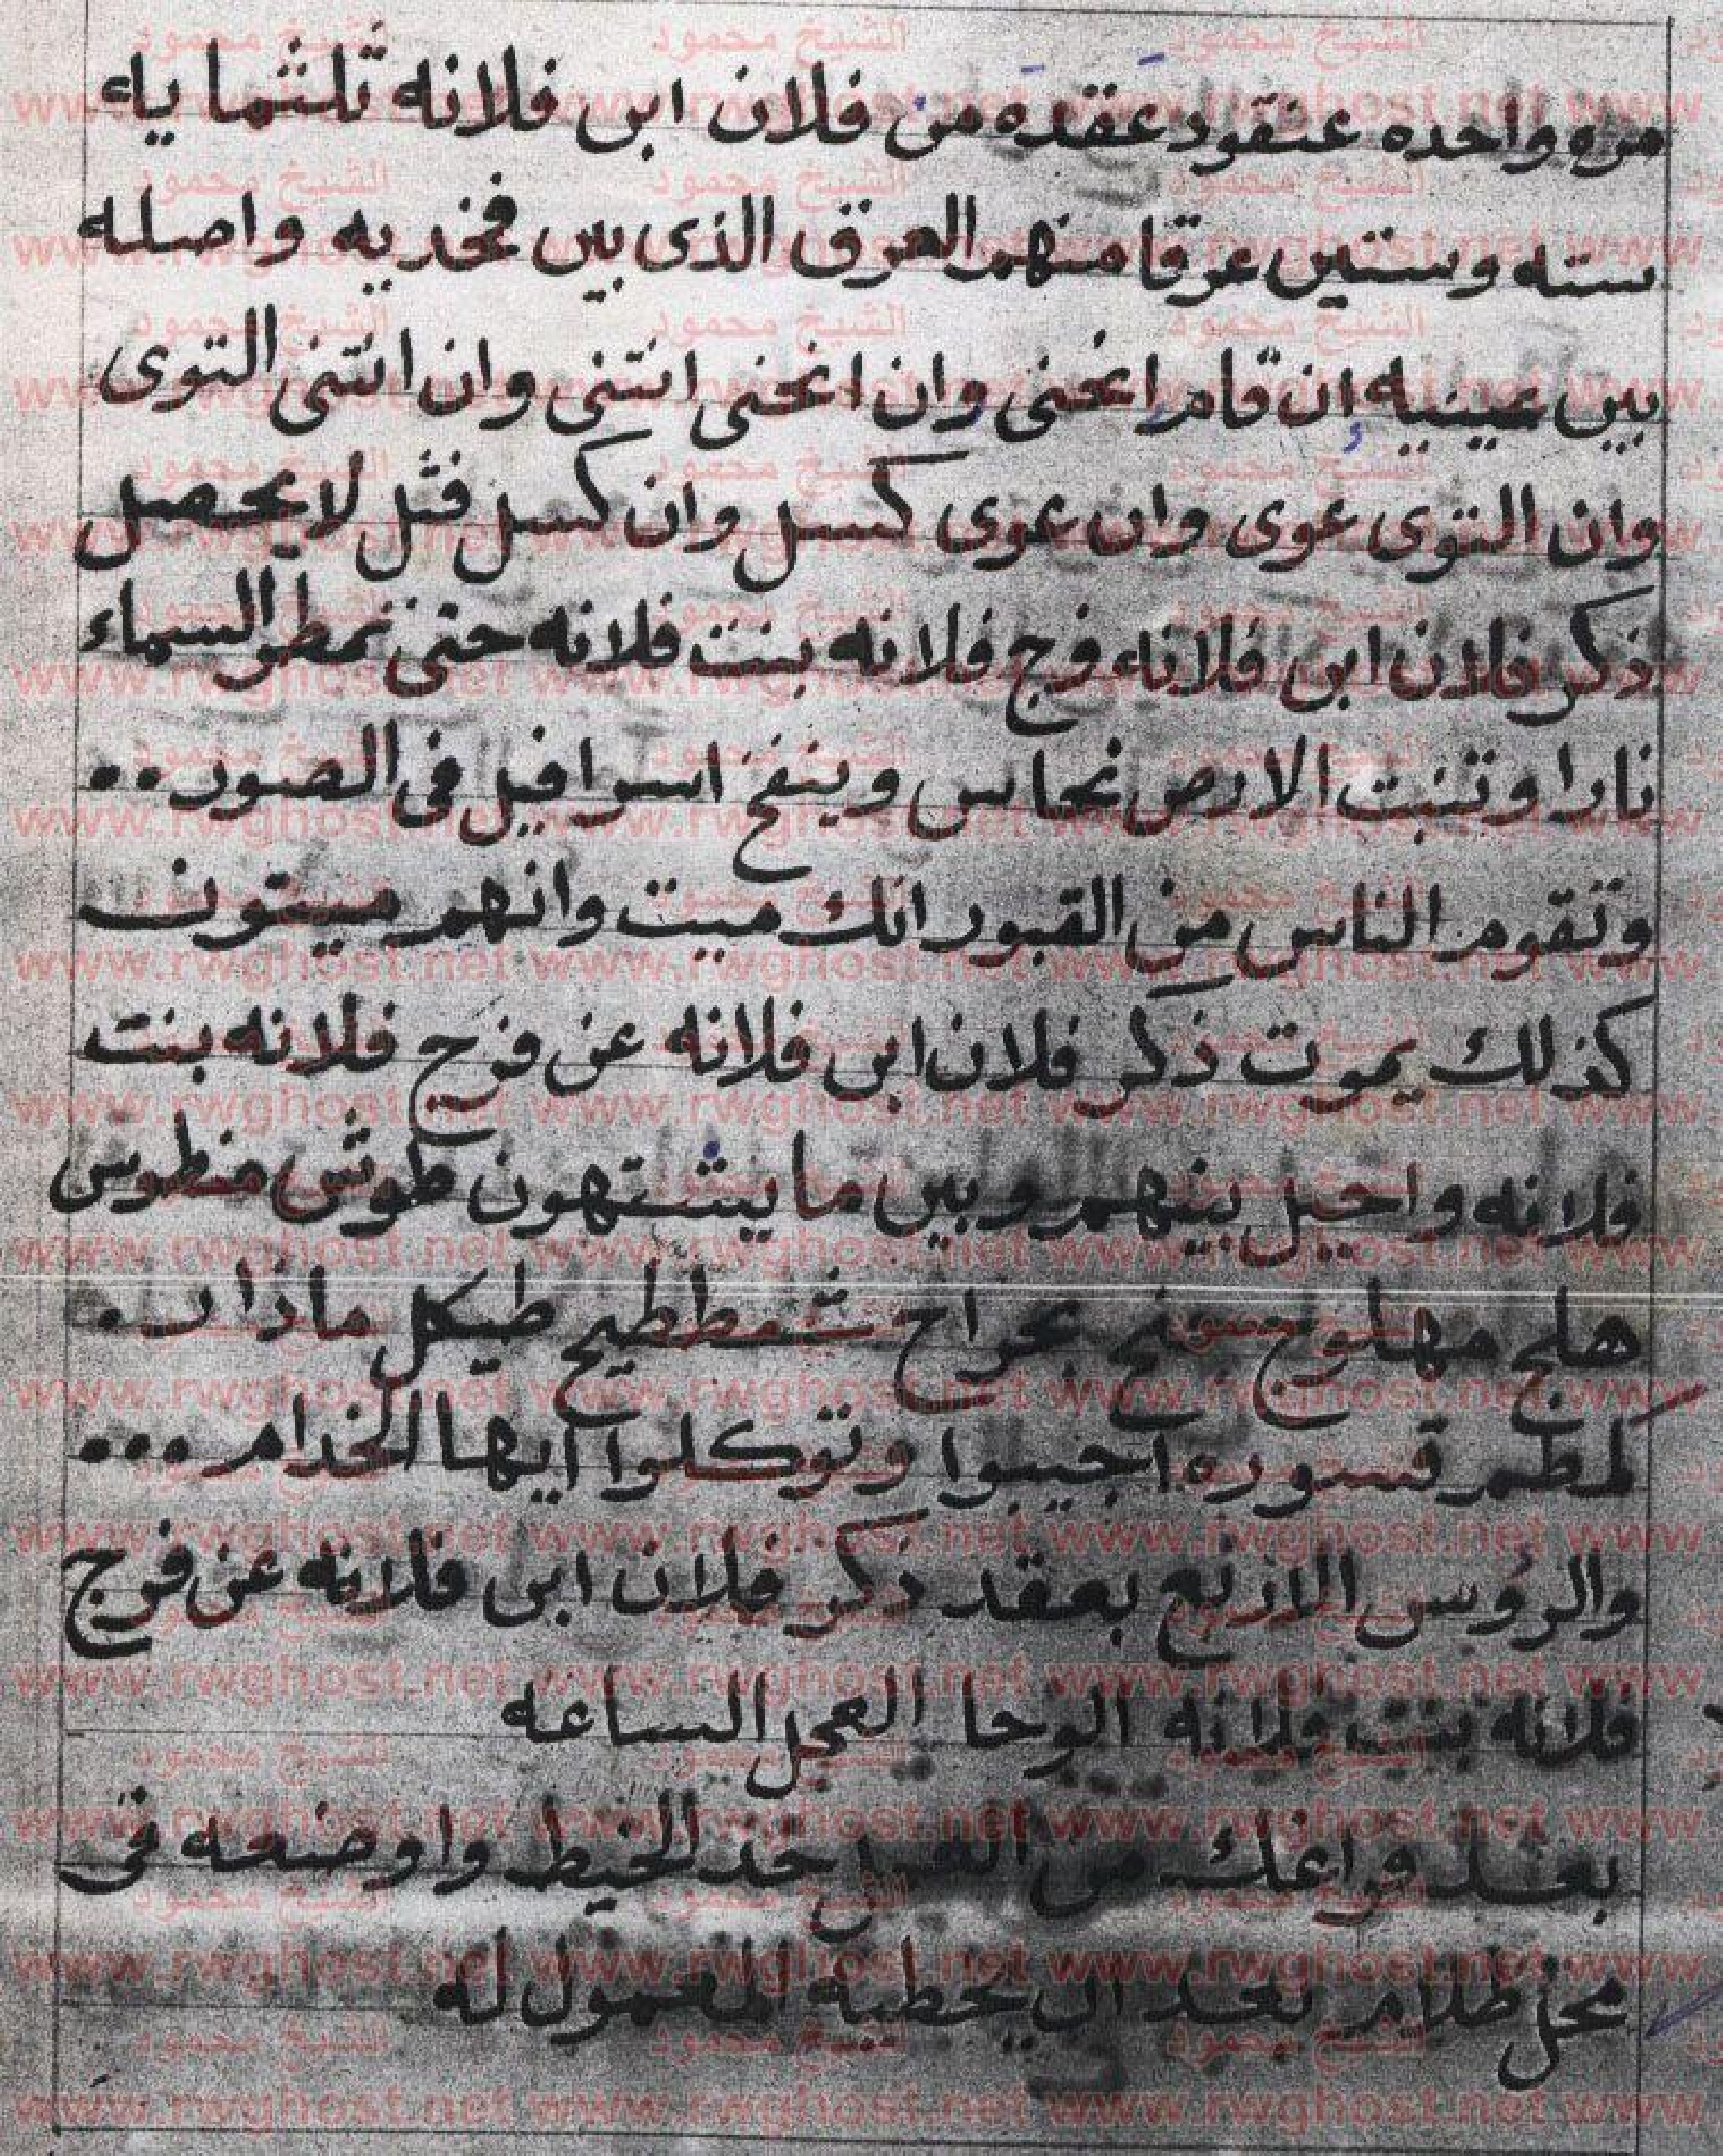 مره واحده عنقود عَقدَه من فلان ابن فلانه تلثمايه
سته وستين عرقا منهم العرق الذى بين فخديه واصله
بين عينيه إن قام إنحنى وان انحنى انتنى وان انتنى التوى
وان التوى عوى وان عوى كسل وان كسل فتل لا يحصل
ذكر فلان ابن فلانه فرج فلانه بنت فلانه حتى تمطر السماء
نارا وتنبت الارض نحاس وينفخ اسرافيل فى الصور..
وتقوم الناس من القبور انك ميت وانهم ميتون
كذلك يموت ذكر فلان ابن فلانه عن فرج فلانه بنت
فلانه واحيل بينهم وبين ما يشتهون طوش منطوس
هلج مهلوج بحراح شمططيح طيكل ماذار.
لمطم قسوره اجيبوا وتوكلوا ايها الخدام...
والرؤس الاربع بعقد ذكر فلان ابن فلانه عن فرج
فلانه بنت فلانه الوحا العجل الساعه
بعد فراغك من خد الخيط واوضعه فى
محل ظلام بعد ان يخطيه المعمول له
الشيخ محمود
www.rwghost.net